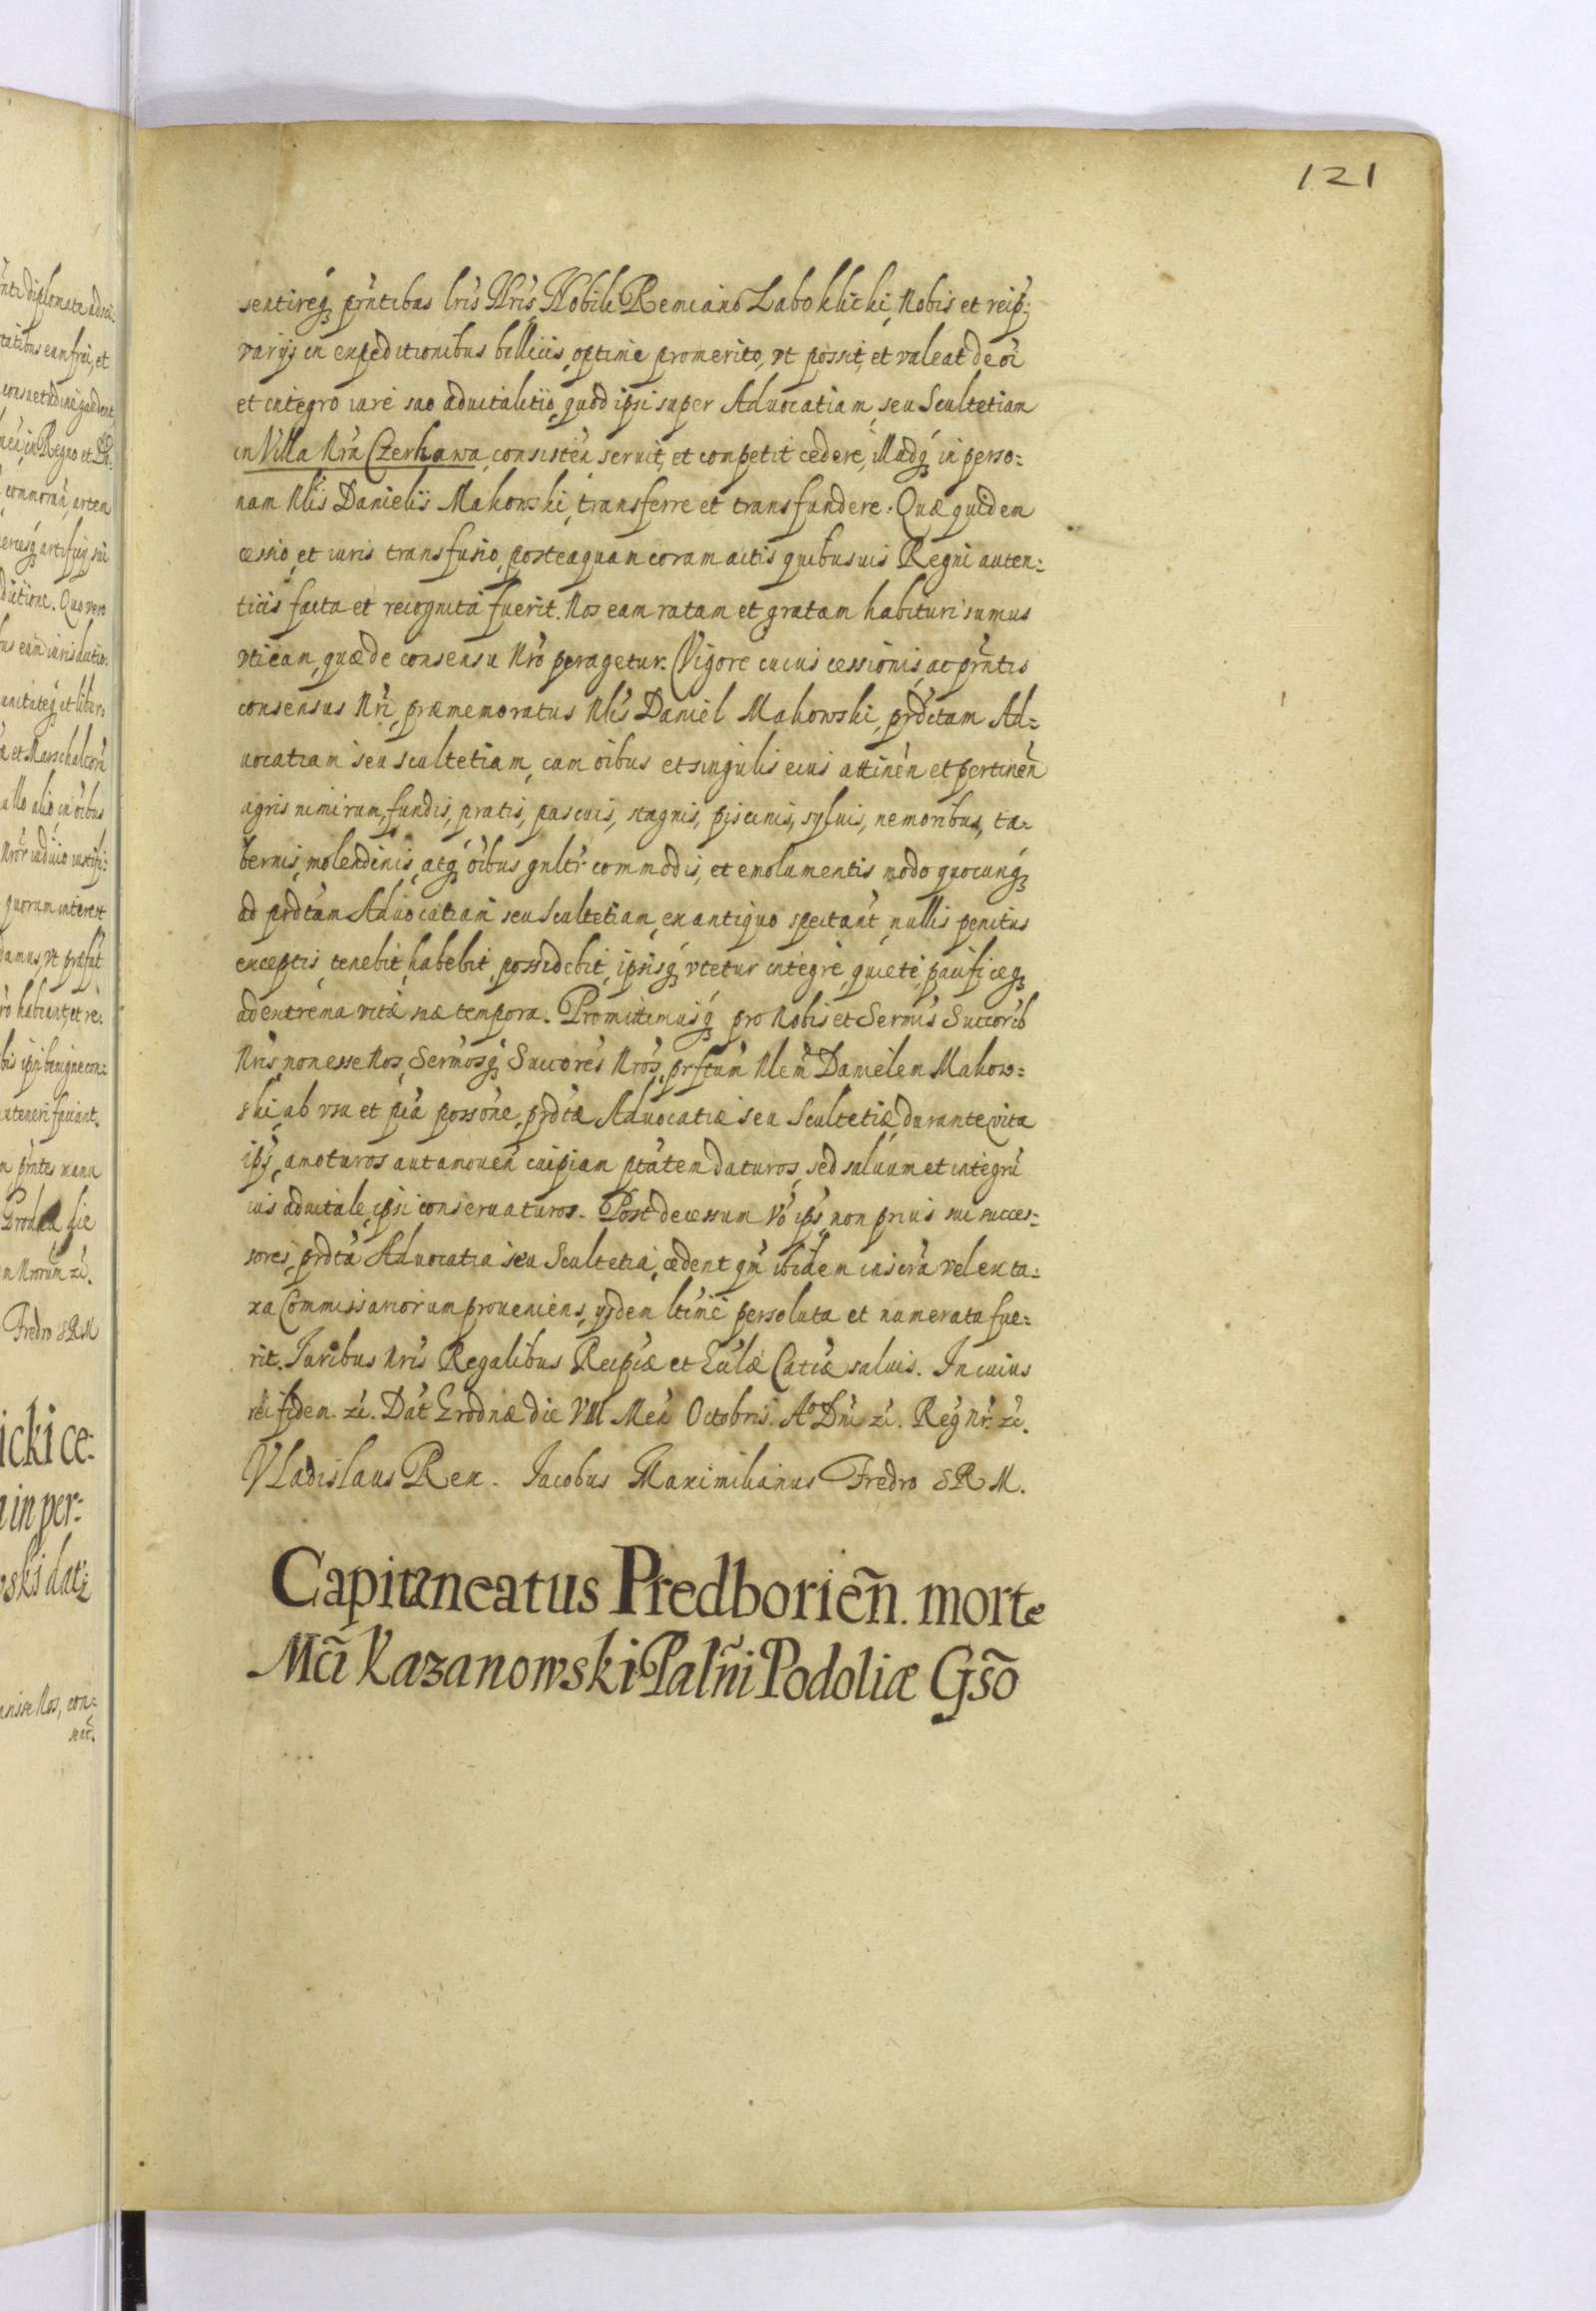 121
sentireq́ꝫ prńtibus lrís Nrís, Nobili Remiano Laboklicki, Nobis et reip:
varijs in expeditionibus bellicis, optime promerito, vt possit, et valeat de oi
et integro iure suo aduitalitio, quod ipsi super Aduocatiam, seu Scultetiam
in Villa Nrá Czerhawa, consistén seruit, et competit cedere, illudq́ꝫ in perso:
nam Nlis Danielis Makowski, transferre et transfundere. Quæ quidem
cessio, et iuris transfusio, posteaquam coram actis quibusuis Regni auten:
ticis facta et recognita fuerit. Nos eam ratam et gratam habituri sumus
vti eam, quæ de consensu Nró peragetur. Vigore cuius cessionis, ac prńtis
consensus Nrí, præmemoratus Nlis Daniel Makowski, prdćtam Ad:
uocatiam seu scultetiam, cum oibus et singulis eius attinén et pertinén
agris nimirum, fundis, pratis, pascuis, stagnis, piscinis, syluis, nemoribus, ta:
bernis, molendinis, atqꝫ óibus gnltŕ commodis, et emolumentis modo quocunq́ꝫ
ad prdćtam Aduocatiam seu Scultetiam, ex antiquo spectánt, nullis penitus
exceptis, tenebit, habebit, possidebit, ipsisq́ꝫ vtetur integrè, quietè, pacificeqꝫ
ad extrema vitæ suæ tempora. Promittimusq́ꝫ pro Nobis et Sermís Succoríb
Nrís, non esse Nos, Sermósq́ꝫ Succorés Nrós, prfctúm Nlem̃ Danielem Makow:
ski, ab vsu et pcá possóne, prdćtæ Aduocatiæ seu Scultetiæ, durante vita
ipś, amoturos aut amouen̄ cuipiam ptátem daturos, sed saluum et integrú
ius aduitale, ipsi conseruaturos. Post decessum vó ipś, non prius sui succes:
sores, prdćta Aduocatia seu Scultetia, cedent, qm̃ ibidem inscrá vel ex ta:
xa Commissariorum proueniens, ijsdem ltímè persoluta et numerata fue:
rit. Juribus Nrís Regalibus Reipćæ et Eccĺæ Catćæ saluis. In cuius
rei fidem. zć. Dát Grodnæ die VIII Mén Octobris. Aº Dni zć. Reg̃ Nŕ. zć.
Vladislaus Rex. Jacobus Maximilianus Fredro SRM.
Capitaneatus Predborien̄. morte
Mcĩ Kazanowski Palñi Podoliæ Gsõ